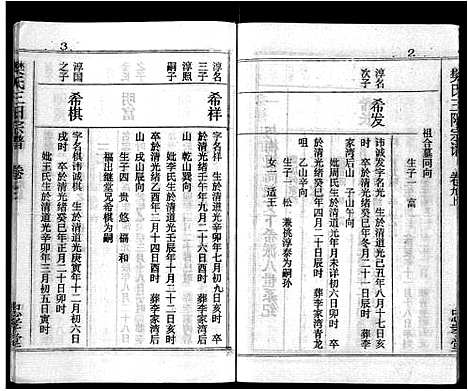 樊氏三陽宗譜 卷九上
忠孝堂
2
祖合墓同向
生子一 富
淳名
次子
希发
字名光 生於清道光己丑年八月十七日
諱诚发 卒於清光绪癸巳年冬月二十一日辰時 葬李
家湾后山 子山午向
妣周氏生於清道光年月未详初六日卯時
卒於清光绪癸巳年四月二十日辰時 葬李家湾青龙
咀 乙山辛向
生子一 松 兼祧淳泰为嗣孙
女一 适王
3
淳名
三子
淳照
嗣子
希祥
字名祥 生於清道光辛卯年七月初九日亥時 卒
於清光绪壬午年九月二十六日酉時 葬李家湾后
山 乾山巽向
妣李氏生於清道光壬辰年十月二十二日亥時
卒於清光绪乙酉年二月十四日酉時 葬李家湾后
山 戌山辰向
生子四 贵 悠 福 和
福出继堂兄希棋为嗣
淳国
之子
希棋
字名棋諱诚 生於清道光庚寅年十二月初六日
戌時 卒於清光绪癸巳年正月二十日卯時
妣王氏生於清道光辛卯年三月初五日寅時